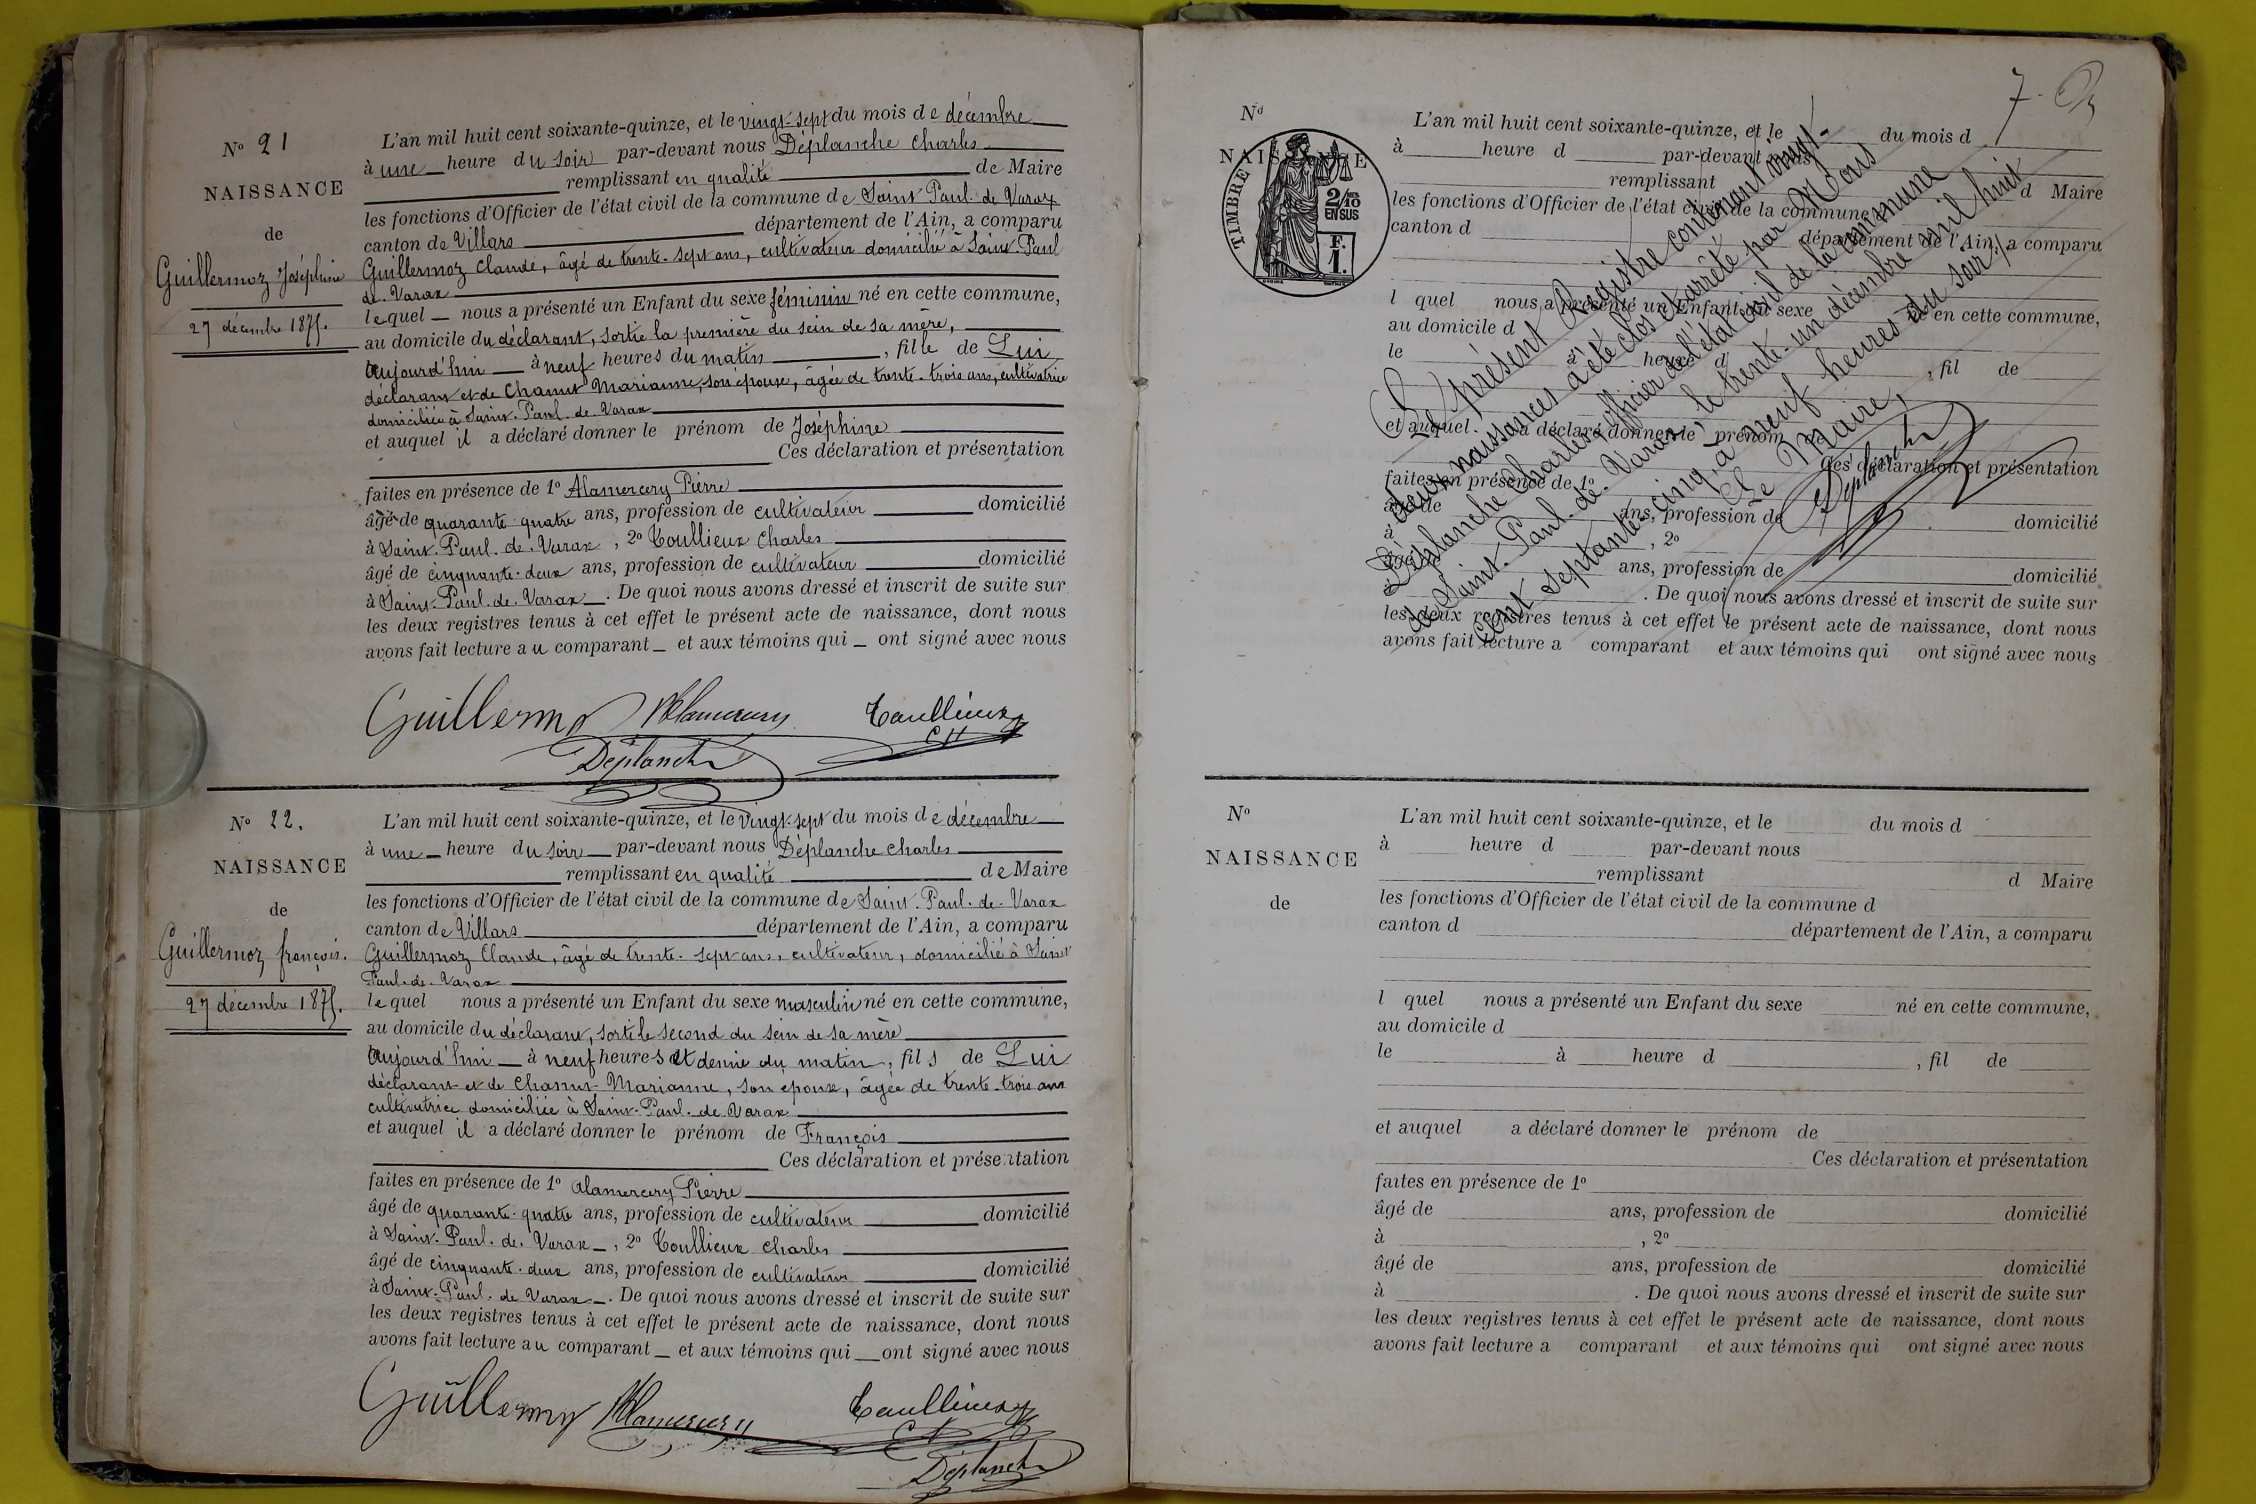 N° 21
NAISSANCE
de
Guillermoz Joséphine
27 décembre 1875.
L'an mil huit cent soixante-quinze, et le vingt-sept du mois de décembre
à une heure du soir par-devant nous Déplanche Charles
remplissant en qualité de Maire
les fonctions d'Officier de l'état civil de la commune de Saint-Paul-de-Varax
canton de Villars département de l'Ain, a comparu
Guillermoz Claude, âgé de trente-sept ans, cultivateur domicilié à Saint-Paul
de-Varax
lequel nous a présenté un Enfant du sexe féminin né en cette commune,
au domicile du déclarant, sortie la première du sein de sa mère,
aujourd'hui à neuf heures du matin, fille de Lui
déclarant et de Chanut Marianne, son épouse, âgée de trente-trois ans, cultivatrice
domiciliée à Saint-Paul-de-Varax
et auquel il a déclaré donner le prénom de Joséphine
Ces déclaration et présentation
faites en présence de 1° Alamercery Pierre
âgé de quarante-quatre ans, profession de cultivateur domicilié
à Saint-Paul-de-Varax, 2° Toullieux Charles
âgé de cinquante-deux ans, profession de cultivateur domicilié
à Saint-Paul-de-Varax. De quoi nous avons dressé et inscrit de suite sur
les deux registres tenus à cet effet le présent acte de naissance, dont nous
avons fait lecture au comparant et aux témoins qui ont signé avec nous
Guillermoz Alamercery Toullieux
CH
Déplanche
N° 22.
NAISSANCE
de
Guillermoz françois.
27 décembre 1875.
L'an mil huit cent soixante-quinze, et le vingt-sept du mois de décembre
à une heure du soir par-devant nous Déplanche Charles
remplissant en qualité de Maire
les fonctions d'Officier de l'état civil de la commune de Saint-Paul-de-Varax
canton de Villars département de l'Ain, a comparu
Guillermoz Claude, âgé de trente-sept ans, cultivateur, domicilié à Saint
Paul-de-Varax
lequel nous a présenté un Enfant du sexe masculin né en cette commune,
au domicile du déclarant, sorti le second du sein de sa mère
aujourd'hui à neuf heures et demie du matin, fils de Lui
déclarant et de Chanut Marianne, son épouse, âgée de trente-trois ans
cultivatrice domiciliée à Saint-Paul-de-Varax
et auquel il a déclaré donner le prénom de François
Ces déclaration et présentation
faites en présence de 1° Alamercery Pierre
âgé de quarante-quatre ans, profession de cultivateur domicilié
à Saint-Paul-de-Varax, 2° Toullieux Charles
âgé de cinquante-deux ans, profession de cultivateur domicilié
à Saint-Paul-de-Varax. De quoi nous avons dressé et inscrit de suite sur
les deux registres tenus à cet effet le présent acte de naissance, dont nous
avons fait lecture au comparant et aux témoins qui ont signé avec nous
Guillermoz Alamercery Toullieux
Déplanche
7.
N°
NAISSANCE
TIMBRE
2/10
EN SUS
F.
1.
L'an mil huit cent soixante-quinze, et le du mois d
à heure d par-devant nous
remplissant d Maire
les fonctions d'Officier de l'état civil de la commune d
canton d département de l'Ain, a comparu
l quel nous a présenté un Enfant du sexe né en cette commune,
au domicile d
le à heure d , fil de
et auquel a déclaré donner le prénom de
Ces déclaration et présentation
faites en présence de 1°
âgé de ans, profession de domicilié
à , 2°
âgé de ans, profession de domicilié
à . De quoi nous avons dressé et inscrit de suite sur
les deux registres tenus à cet effet le présent acte de naissance, dont nous
avons fait lecture a comparant et aux témoins qui ont signé avec nous
Le présent Registre contenant vingt-
deux naissances a été clos et arrêté par Nous
Déplanche Charles, officier de l'état civil de la commune
de Saint-Paul-de-Varax, le trente-un décembre mil huit
cent septante-cinq, à neuf heures du soir.
Le Maire,
Déplanche
N°
NAISSANCE
de
L'an mil huit cent soixante-quinze, et le du mois d
à heure d par-devant nous
remplissant d Maire
les fonctions d'Officier de l'état civil de la commune d
canton d département de l'Ain, a comparu
l quel nous a présenté un Enfant du sexe né en cette commune,
au domicile d
le à heure d , fil de
et auquel a déclaré donner le prénom de
Ces déclaration et présentation
faites en présence de 1°
âgé de ans, profession de domicilié
à , 2°
âgé de ans, profession de domicilié
à . De quoi nous avons dressé et inscrit de suite sur
les deux registres tenus à cet effet le présent acte de naissance, dont nous
avons fait lecture a comparant et aux témoins qui ont signé avec nous